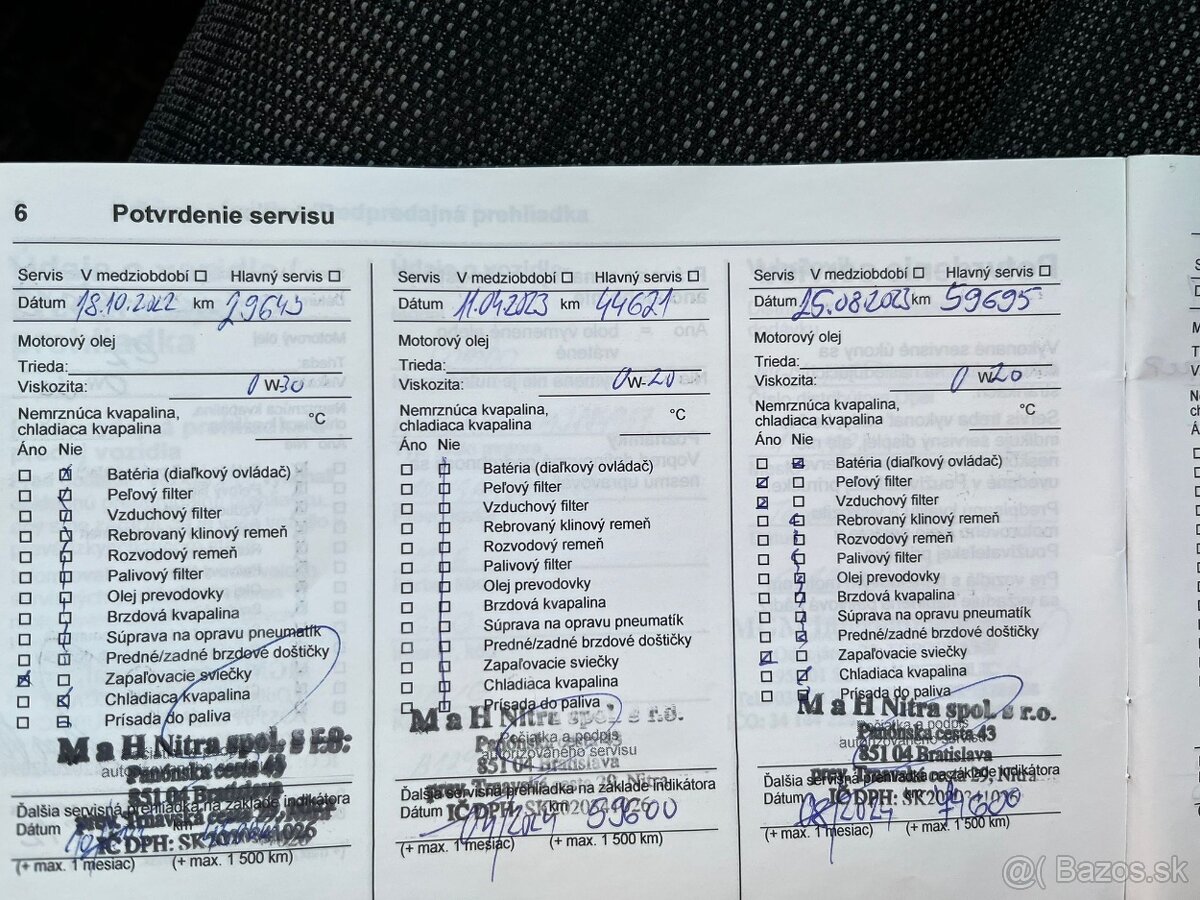 6 Potvrdenie servisu
Servis V medziobdobí Hlavný servis
Dátum 18.10.2022 km 29643
Motorový olej
Trieda:
Viskozita: 0W-30
Nemrznúca kvapalina,
chladiaca kvapalina °C
Áno Nie
Batéria (diaľkový ovládač)
Peľový filter
Vzduchový filter
Rebrovaný klinový remeň
Rozvodový remeň
Palivový filter
Olej prevodovky
Brzdová kvapalina
Súprava na opravu pneumatík
Predné/zadné brzdové doštičky
Zapaľovacie sviečky
Chladiaca kvapalina
Prísada do paliva
M a H Nitra spol. s r.o.
Panónska cesta 43
851 04 Bratislava
Ďalšia servisná prehliadka na základe indikátora
prev. Trnavská cesta 29, Nitra
Dátum km
IČ DPH:
(+ max. 1 mesiac) (+ max. 1 500 km)
Servis V medziobdobí Hlavný servis
Dátum 11.04.2023 km 44621
Motorový olej
Trieda:
Viskozita: 0W-20
Nemrznúca kvapalina,
chladiaca kvapalina °C
Áno Nie
Batéria (diaľkový ovládač)
Peľový filter
Vzduchový filter
Rebrovaný klinový remeň
Rozvodový remeň
Palivový filter
Olej prevodovky
Brzdová kvapalina
Súprava na opravu pneumatík
Predné/zadné brzdové doštičky
Zapaľovacie sviečky
Chladiaca kvapalina
Prísada do paliva
M a H Nitra spol. s r.o.
Pečiatka a podpis
Panónska cesta 43
autorizovaného servisu
851 04 Bratislava
Ďalšia servisná prehliadka na základe indikátora
Dátum 04/2024 km 59600
IČ DPH:
(+ max. 1 mesiac) (+ max. 1 500 km)
Servis V medziobdobí Hlavný servis
Dátum 25.08.2023 km 59695
Motorový olej
Trieda:
Viskozita: 0W20
Nemrznúca kvapalina,
chladiaca kvapalina °C
Áno Nie
Batéria (diaľkový ovládač)
Peľový filter
Vzduchový filter
Rebrovaný klinový remeň
Rozvodový remeň
Palivový filter
Olej prevodovky
Brzdová kvapalina
Súprava na opravu pneumatík
Predné/zadné brzdové doštičky
Zapaľovacie sviečky
Chladiaca kvapalina
Prísada do paliva
M a H Nitra spol. s r.o.
Pečiatka a podpis
Panónska cesta 43
autorizovaného servisu
851 04 Bratislava
Ďalšia servisná prehliadka na základe indikátora
Dátum 08/2024 74600
IČ DPH:
(+ max. 1 mesiac) (+ max. 1 500 km)
@( Bazos.sk